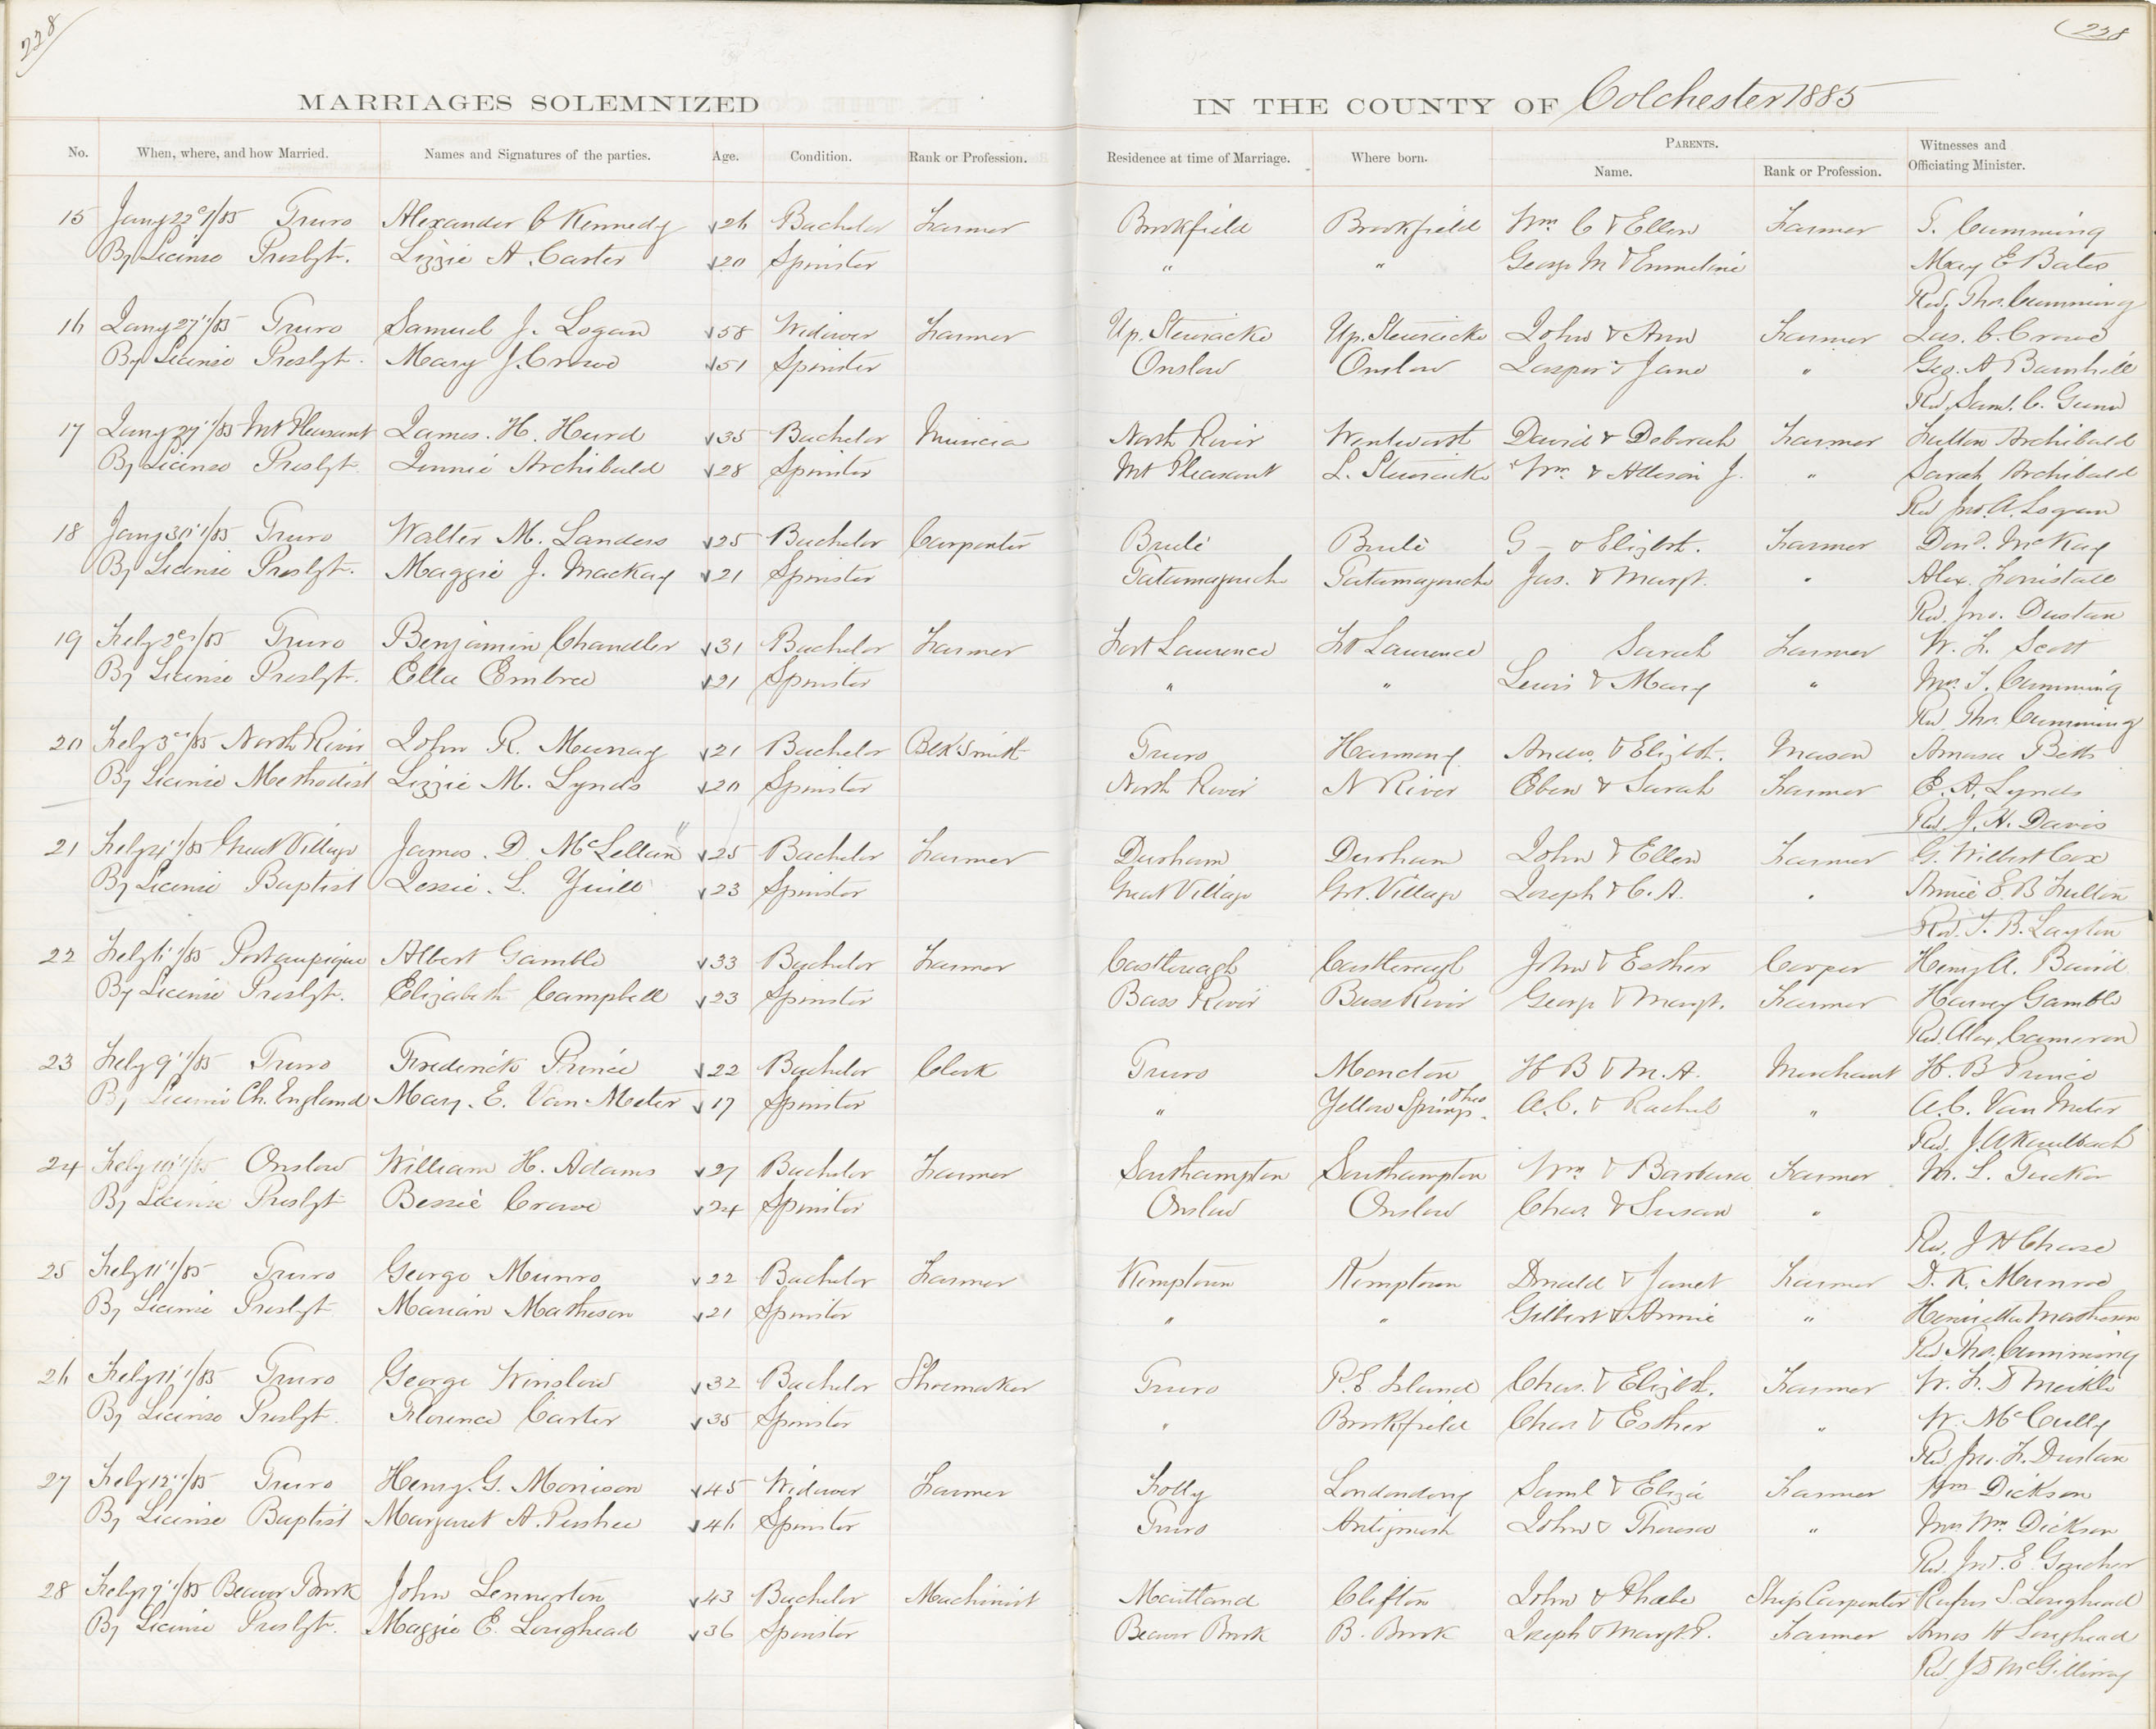 228
228
MARRIAGES SOLEMNIZED IN THE COUNTY OF Colchester 1885
No. When, where, and how Married. Names and Signatures of the parties. Age. Condition. Rank or Profession. Residence at time of Marriage. Where born. PARENTS. Name. Rank or Profession. Witnesses and Officiating Minister.
15 Jany 22d/85 Truro Alexander C Kennedy 26 Bachelor Farmer Brookfield Brookfield Wm. C & Ellen Farmer T. Cumming
By License Presbyt. Lizzie A. Carter 20 Spinster " " George M & Emmeline Mary E Bates
Rev. Thos. Cumming
16 Jany 27"/85 Truro Samuel J. Logan 58 Widower Farmer Up. Stewiacke Up. Stewiacke John & Ann Farmer Jas. C. Crowe
By License Presbyt. Mary J. Crowe 51 Spinster Onslow Onslow Jasper & Jane " Geo. A Barnhill
Rev. Saml. C. Gunn
17 Jany 29"/85 Mt Pleasant James. H. Hurd 35 Bachelor North River Wentworth David & Deborah Farmer Fulton Archibald
By License Presbyt. Jennie Archibald 28 Spinster Mt Pleasant L. Stewiacke Wm. & Allison J. " Sarah Archibald
Rev Jno. A. Logan
18 Jany 30"/85 Truro Walter M. Landers 25 Bachelor Carpenter Brulé Brulé G — & Elizbt. Farmer Dond. McKay
By License Presbyt. Maggie J. MacKay 21 Spinster Tatamagouche Tatamagouche Jas. & Margt. " Alex. Forristall
Rev. Jno. Dustan
19 Feby 2d/85 Truro Benjamin Chandler 31 Bachelor Farmer Fort Lawrence Ft Lawrence Sarah Farmer W. F. Scott
By License Presbyt. Ella Embree 21 Spinster " " Lewis & Mary " Mrs. T. Cumming
Rev Thos. Cumming
20 Feby 3d/85 North River John R. Murray 21 Bachelor Blk Smith Truro Harmony Andw. & Elizbt. Mason Amasa Betts
By License Methodist Lizzie M. Lynds 20 Spinster North River N River Eben & Sarah Farmer E. A. Lynds
Rev. J. H. Davis
21 Feby 4"/85 Great Village James. D. McLellan 25 Bachelor Farmer Durham Durham John & Ellen Farmer G. Wilbert Cox
By License Baptist Jessie. L. Yuill 23 Spinster Great Village Grt. Village Joseph & C. A. " Annie E. B Fulton
Rev. T. B. Layton
22 Feby 6"/85 Portaupique Albert Gamble 33 Bachelor Farmer Castlereagh Castlereagh John & Esther Cooper Henry A. Baird
By License Presbyt. Elizabeth Campbell 23 Spinster Bass River Bass River George & Margt. Farmer Harvey Gamble
Rev. Alex Cameron
23 Feby 9"/85 Truro Frederick Prince 22 Bachelor Clerk Truro Moncton H B & M. A. Merchant H. B Prince
By License Ch. England Mary. E. Van Meter 17 Spinster " Yellow Springs Ohio A. C. & Rachel " A. C. Van Meter
Rev. J. A Kaulbach
24 Feby 10"/85 Onslow William H. Adams 27 Bachelor Farmer Southampton Southampton Wm & Barbara Farmer M. L. Tucker
By License Presbyt Bessie Crowe 24 Spinster Onslow Onslow Chas. & Susan "
Rev. J H Chase
25 Feby 11"/85 Truro George Munro 22 Bachelor Farmer Kemptown Kemptown Donald & Janet Farmer D. K. Munroe
By License Presbyt Marian Matheson 21 Spinster " " Gilbert & Annie " Henrietta Matheson
Rev Thos. Cumming
26 Feby 11"/85 Truro George Winslow 32 Bachelor Shoemaker Truro P. E Island Chas. & Elizbt. Farmer W. F. D Meikle
By License Presbyt. Florence Carter 35 Spinster " Brookfield Chas & Esther " W. McCully
Rev Jno. F. Dustan
27 Feby 12"/85 Truro Henry. G. Morrison 45 Widower Farmer Folly Londonderry Saml & Eliza Farmer Wm Dickson
By License Baptist Margaret A. Pushee 46 Spinster Truro Antigonish John & Theresa " Mrs Wm. Dickson
Rev. Jno. E. Goucher
28 Feby 17"/85 Beaver Brook John Lennerton 43 Bachelor Machinist Maitland Clifton John & Phabe Ship Carpenter Rufus S. Loughead
By License Presbyt. Maggie E. Loughead 36 Spinster Beaver Brook B. Brook Joseph & Margt. P. Farmer Amos H Loughead
Rev. J D McGillivray